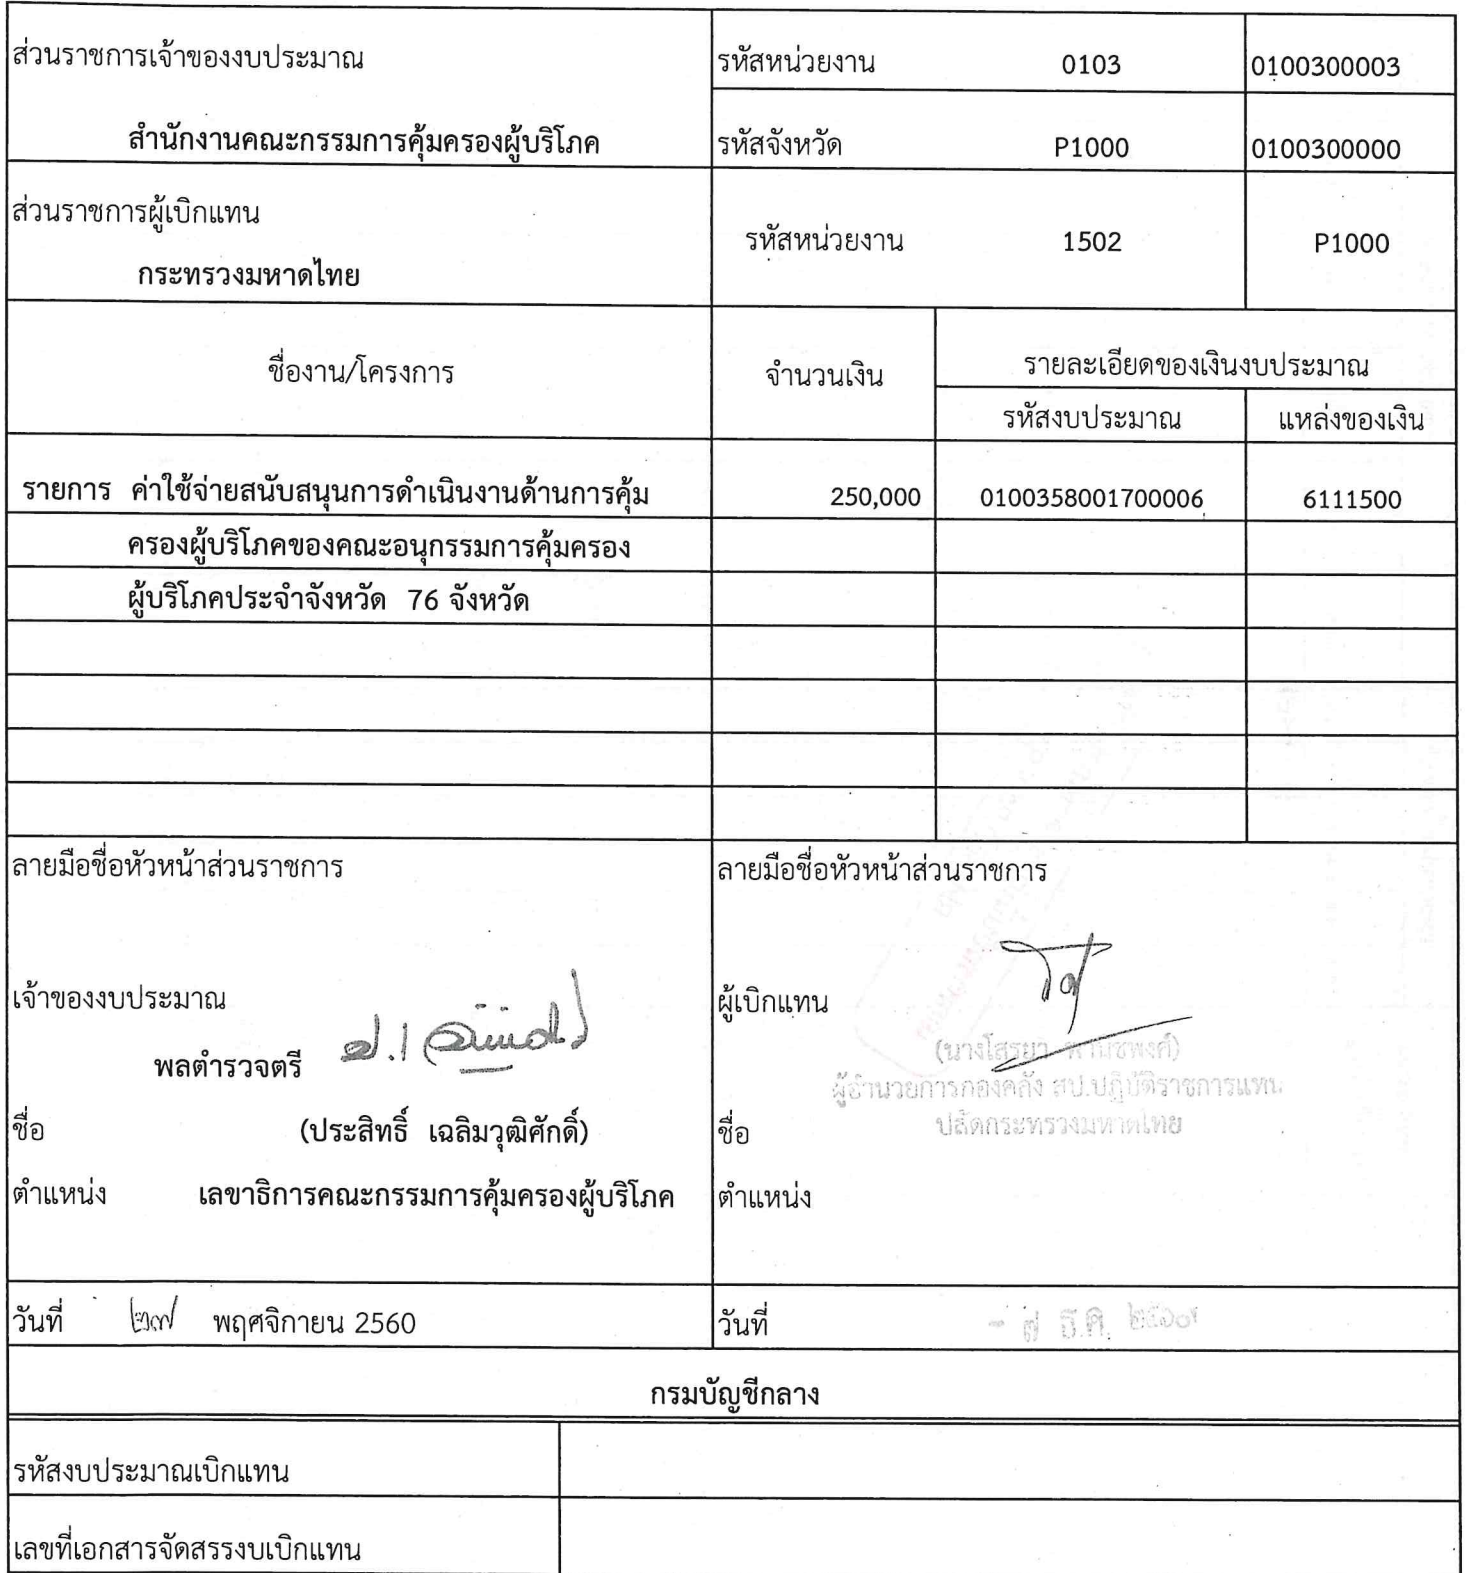 ส่วนราชการเจ้าของงบประมาณ รหัสหน่วยงาน 0103 0100300003
สำนักงานคณะกรรมการคุ้มครองผู้บริโภค รหัสจังหวัด P1000 0100300000
ส่วนราชการผู้เบิกแทน
รหัสหน่วยงาน 1502 P1000
กระทรวงมหาดไทย
ชื่องาน/โครงการ จำนวนเงิน รายละเอียดของเงินงบประมาณ
รหัสงบประมาณ แหล่งของเงิน
รายการ ค่าใช้จ่ายสนับสนุนการดำเนินงานด้านการคุ้ม 250,000 0100358001700006 6111500
ครองผู้บริโภคของคณะอนุกรรมการคุ้มครอง
ผู้บริโภคประจำจังหวัด 76 จังหวัด
ลายมือชื่อหัวหน้าส่วนราชการ
เจ้าของงบประมาณ
พลตำรวจตรี
ชื่อ (ประสิทธิ์ เฉลิมวุฒิศักดิ์)
ตำแหน่ง เลขาธิการคณะกรรมการคุ้มครองผู้บริโภค
วันที่ ๒๗ พฤศจิกายน 2560
ลายมือชื่อหัวหน้าส่วนราชการ
ผู้เบิกแทน
(นางโสรยา
ผู้อำนวยการกองคลัง สป.ปฏิบัติราชการแทน
ปลัดกระทรวงมหาดไทย
ชื่อ
ตำแหน่ง
วันที่ - ๗ ธ.ค. ๒๕๖๐
กรมบัญชีกลาง
รหัสงบประมาณเบิกแทน
เลขที่เอกสารจัดสรรงบเบิกแทน